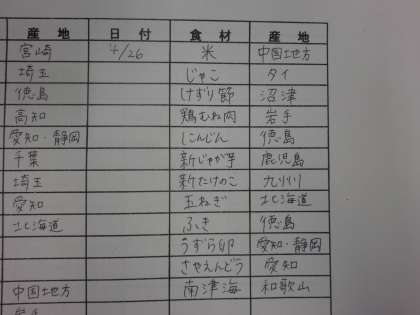 産地 日付 食材 産地
宮崎 4/26 米 中国地方
埼玉 じゃこ タイ
徳島 けずり節 沼津
高知 鶏むね肉 岩手
愛知・静岡 にんじん 徳島
千葉 新じゃが芋 鹿児島
埼玉 新たけのこ 九州
愛知 玉ねぎ 北海道
北海道 ふき 徳島
うずら卵 愛知・静岡
さやえんどう 愛知
中国地方 南津海 和歌山